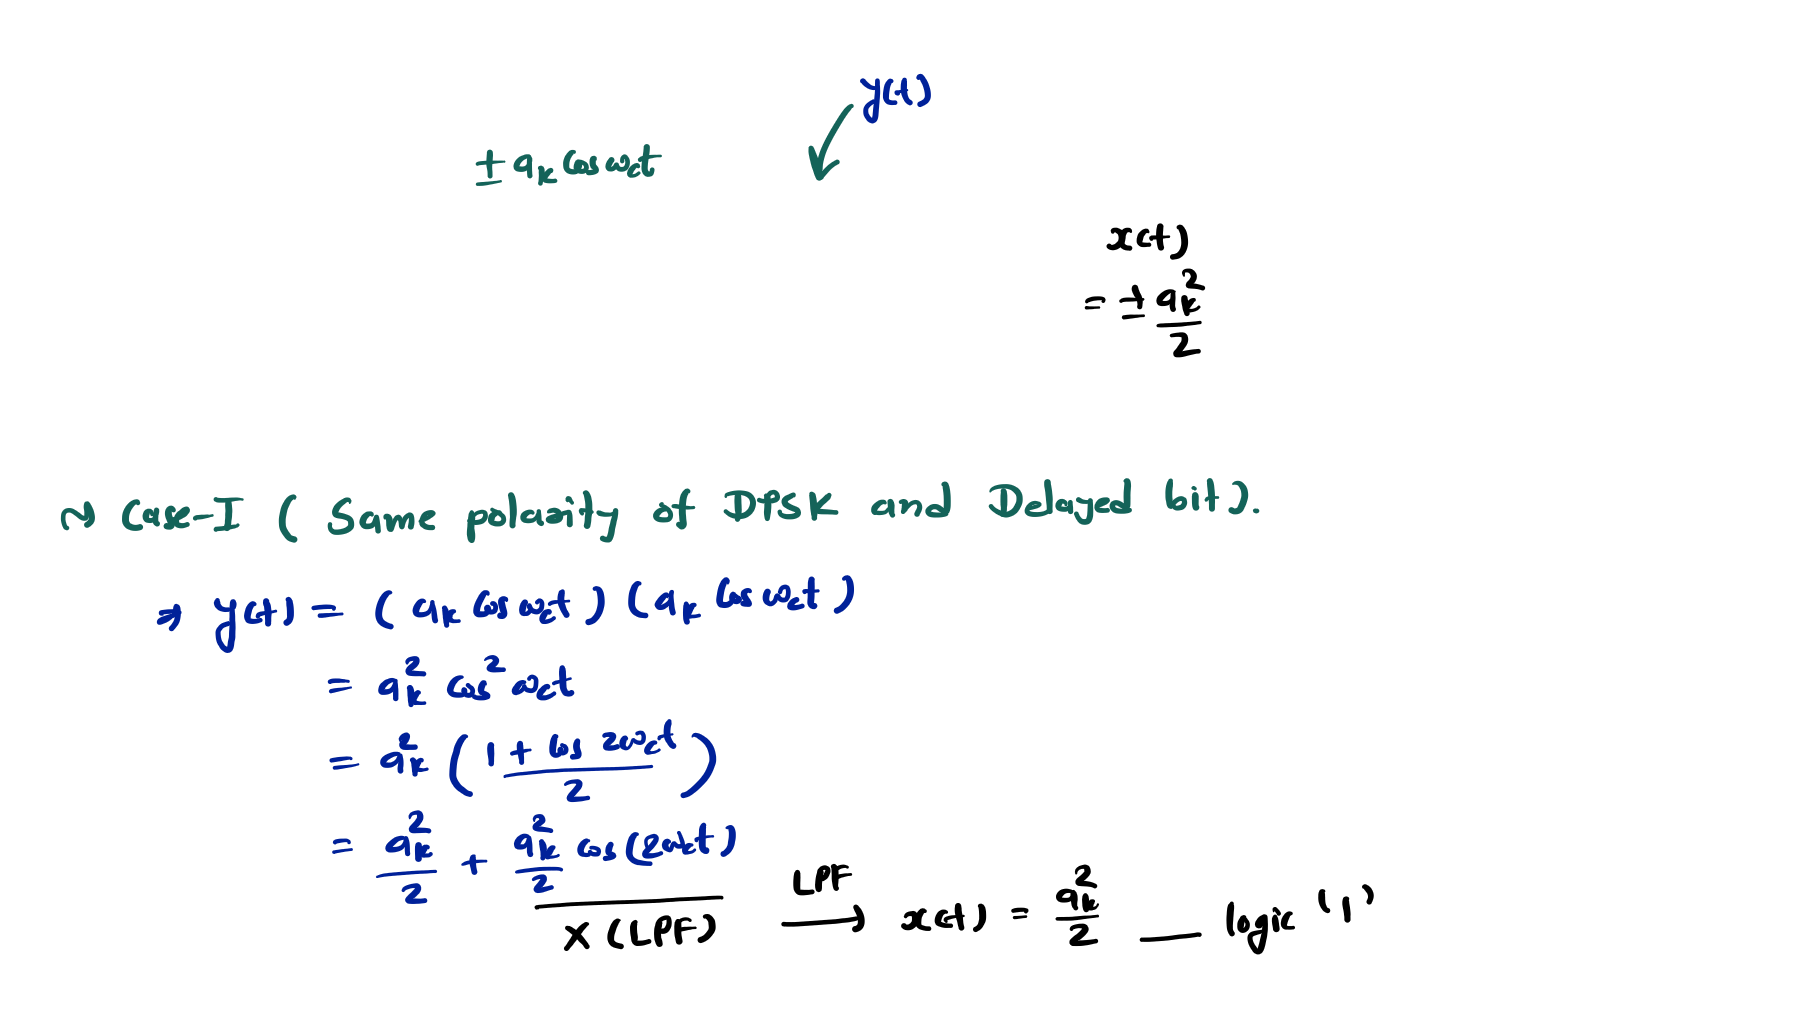 y(t)
± aₖ cos ω_c t
x(t)
= ± aₖ²/2
~ Case-I ( Same polarity of DPSK and Delayed bit).
⇒ y(t) = (aₖ cos ω_c t) (aₖ cos ω_c t)
= aₖ² cos² ω_c t
= aₖ² (1 + cos 2ω_c t / 2)
= aₖ²/2 + aₖ²/2 cos(2ω_c t)
X (LPF) LPF → x(t) = aₖ²/2 — logic '1'